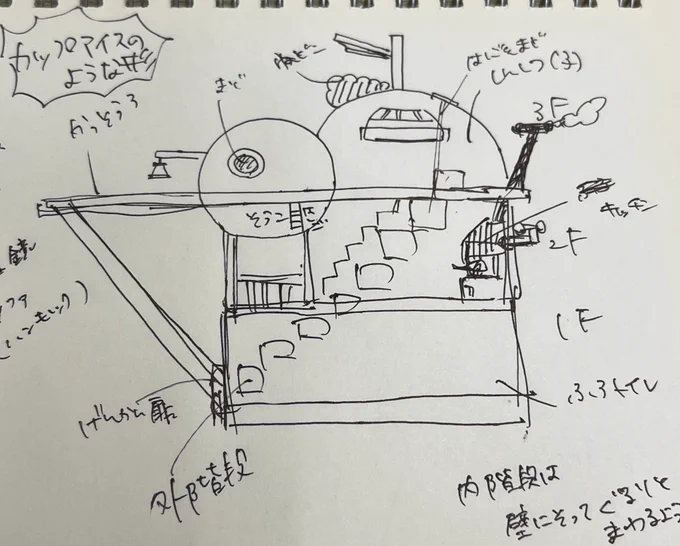 カップアイスの
ような形!!
かっそうろ
まど
はしごをまど
しんしつ(子)
3F
そうこ
キッチン
2F
1F
げんかん扉
ふろトイレ
外階段
内階段は
壁にそってぐるりと
まわるよう
ハンモック)